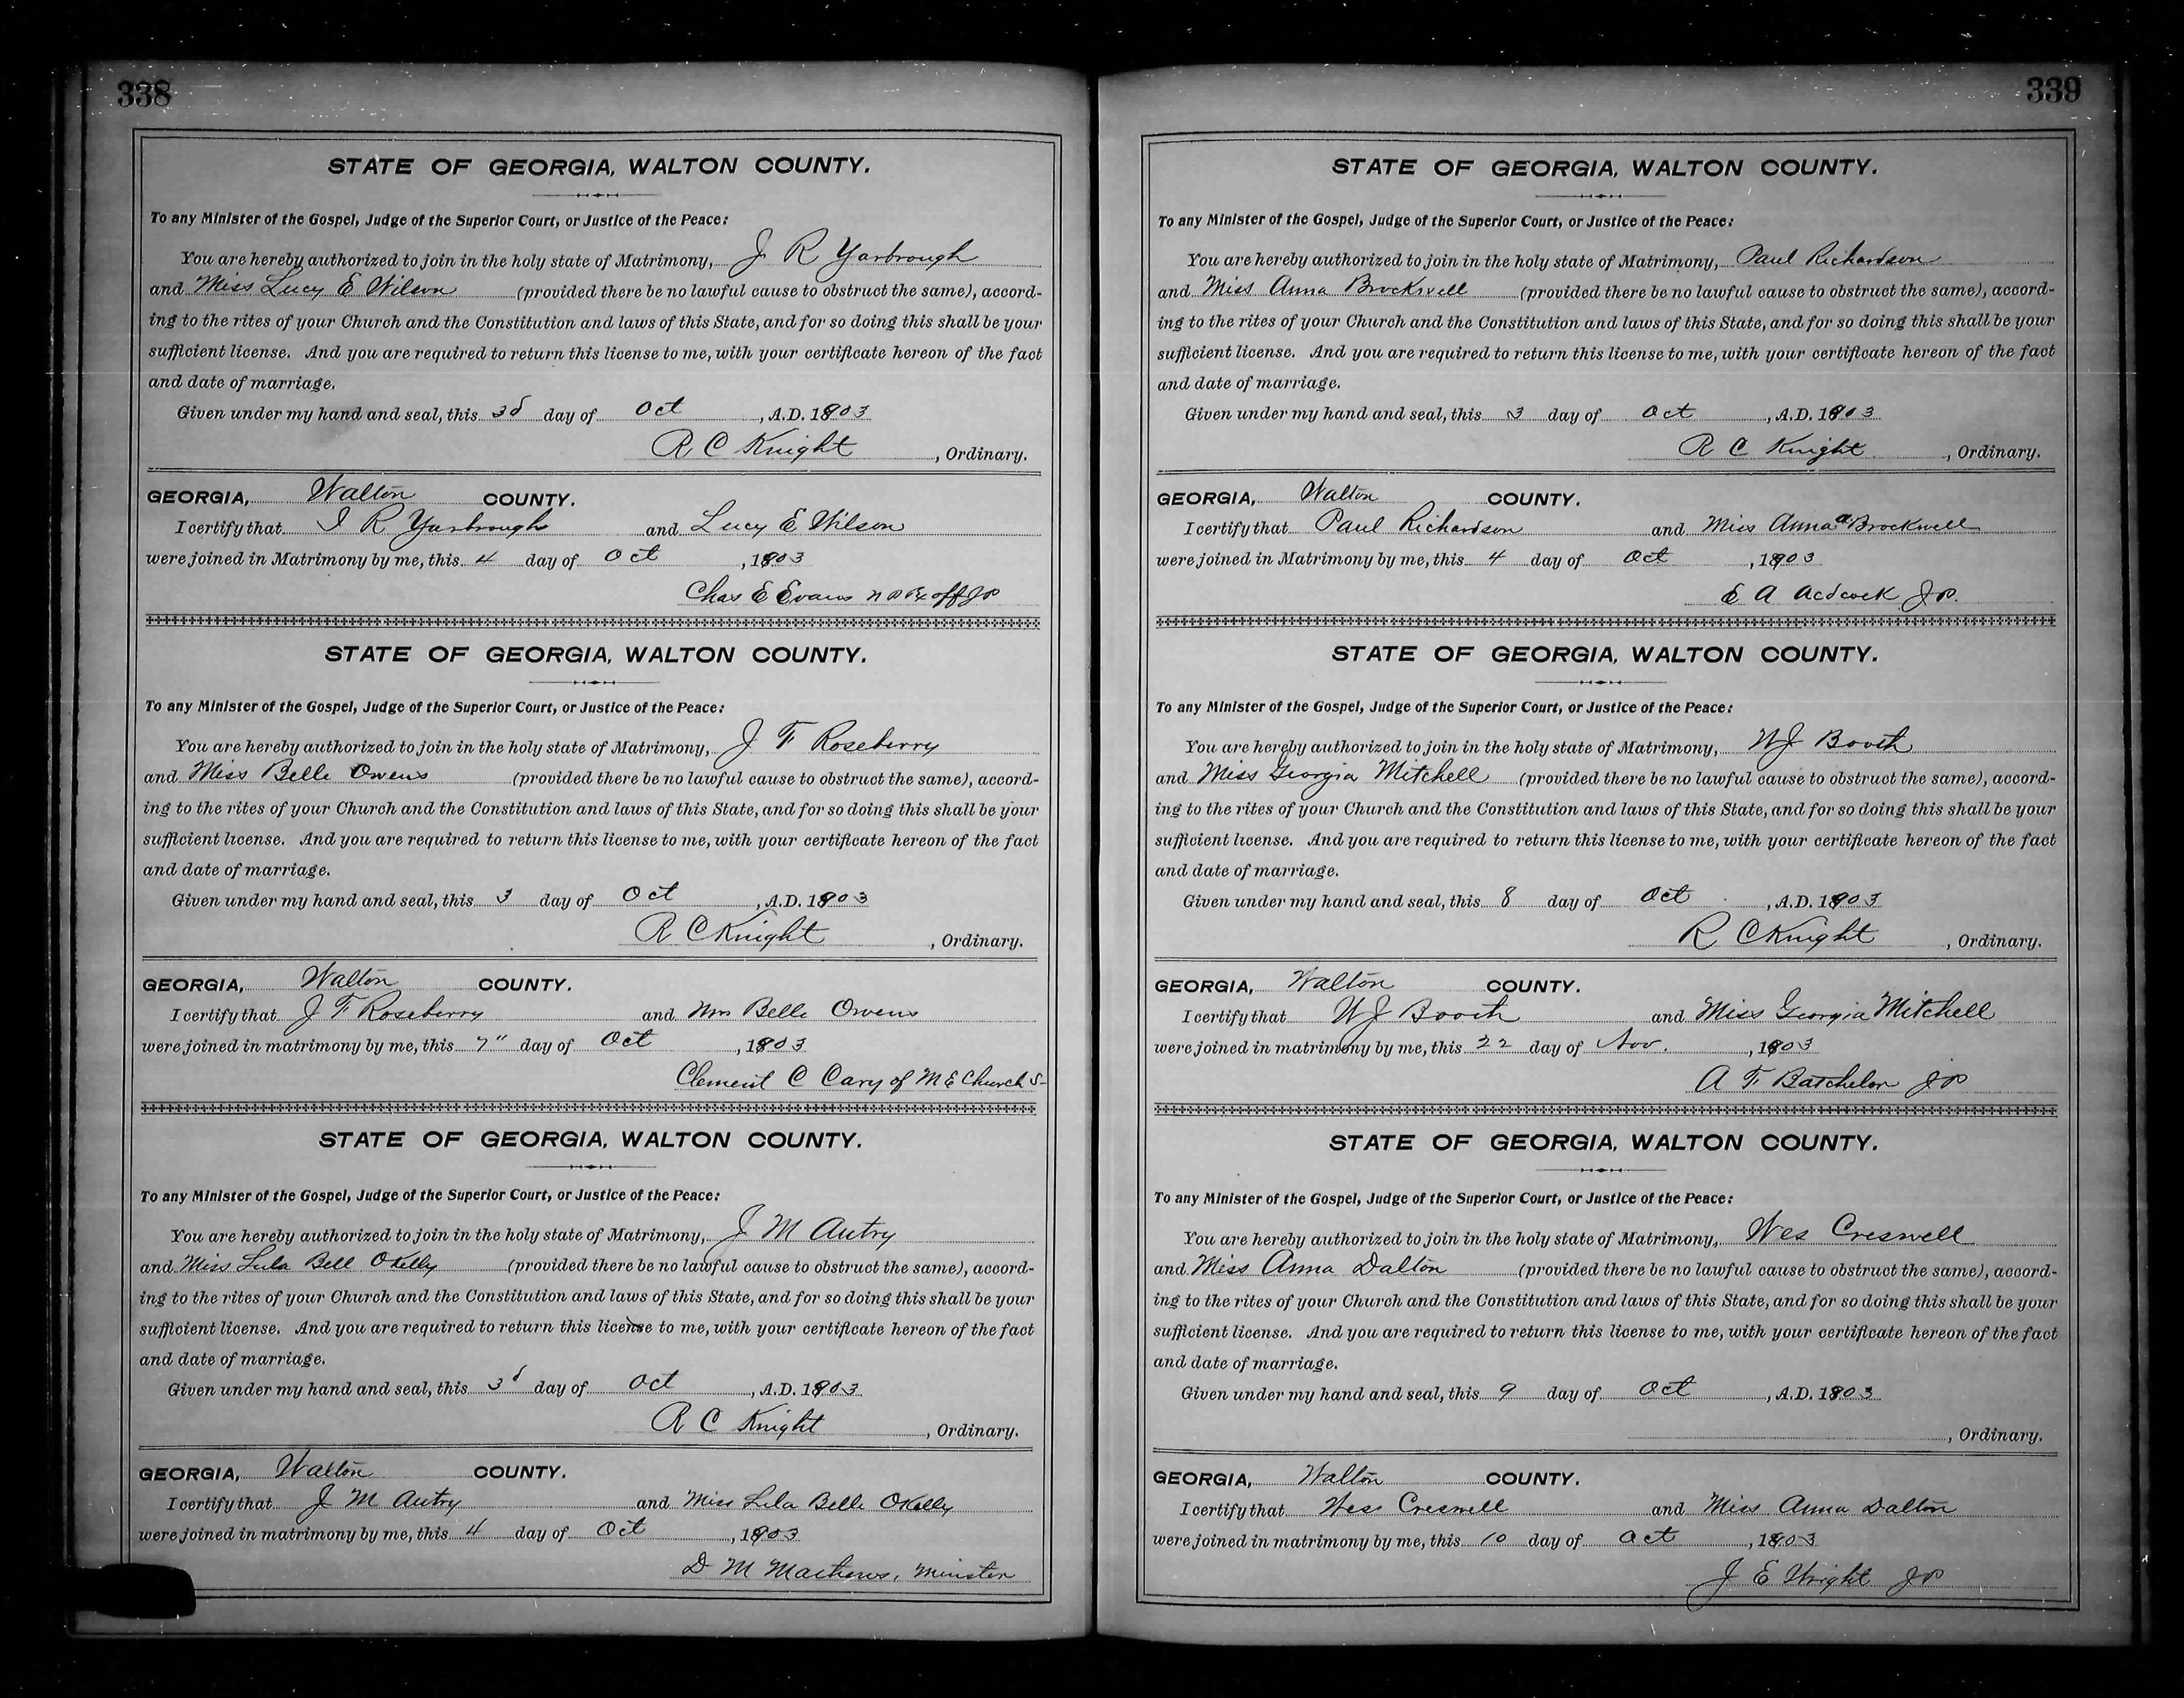 338
STATE OF GEORGIA, WALTON COUNTY.
To any Minister of the Gospel, Judge of the Superior Court, or Justice of the Peace:
You are hereby authorized to join in the holy state of Matrimony, J R Yarbrough
and Miss Lucy E Wilson (provided there be no lawful cause to obstruct the same), accord-
ing to the rites of your Church and the Constitution and laws of this State, and for so doing this shall be your
sufficient license. And you are required to return this license to me, with your certificate hereon of the fact
and date of marriage.
Given under my hand and seal, this 3d day of Oct, A.D. 1903
R C Knight, Ordinary.
GEORGIA, Walton COUNTY.
I certify that J R Yarbrough and Lucy E Wilson
were joined in Matrimony by me, this 4 day of Oct, 1903
Chas E Evans n p Ex off J P
STATE OF GEORGIA, WALTON COUNTY.
To any Minister of the Gospel, Judge of the Superior Court, or Justice of the Peace:
You are hereby authorized to join in the holy state of Matrimony, J F Roseberry
and Miss Belle Owens (provided there be no lawful cause to obstruct the same), accord-
ing to the rites of your Church and the Constitution and laws of this State, and for so doing this shall be your
sufficient license. And you are required to return this license to me, with your certificate hereon of the fact
and date of marriage.
Given under my hand and seal, this 3 day of Oct, A.D. 1903
R C Knight, Ordinary.
GEORGIA, Walton COUNTY.
I certify that J F Roseberry and Belle Owens
were joined in matrimony by me, this 7" day of Oct, 1903
Clement C Cary of M E Church S-
STATE OF GEORGIA, WALTON COUNTY.
To any Minister of the Gospel, Judge of the Superior Court, or Justice of the Peace:
You are hereby authorized to join in the holy state of Matrimony, J M Autry
and Miss Lula Bell OKelly (provided there be no lawful cause to obstruct the same), accord-
ing to the rites of your Church and the Constitution and laws of this State, and for so doing this shall be your
sufficient license. And you are required to return this license to me, with your certificate hereon of the fact
and date of marriage.
Given under my hand and seal, this 3d day of Oct, A.D. 1903
R C Knight, Ordinary.
GEORGIA, Walton COUNTY.
I certify that J M Autry and Miss Lula Belle OKelly
were joined in matrimony by me, this 4 day of Oct, 1903
D M Mathews, Minister
339
STATE OF GEORGIA, WALTON COUNTY.
To any Minister of the Gospel, Judge of the Superior Court, or Justice of the Peace:
You are hereby authorized to join in the holy state of Matrimony, Paul Richardson
and Miss Anna Brockwell (provided there be no lawful cause to obstruct the same), accord-
ing to the rites of your Church and the Constitution and laws of this State, and for so doing this shall be your
sufficient license. And you are required to return this license to me, with your certificate hereon of the fact
and date of marriage.
Given under my hand and seal, this 3 day of Oct, A.D. 1903
R C Knight, Ordinary.
GEORGIA, Walton COUNTY.
I certify that Paul Richardson and Miss Anna a Brockwell
were joined in Matrimony by me, this 4 day of Oct, 1903
E A Adcock J P.
STATE OF GEORGIA, WALTON COUNTY.
To any Minister of the Gospel, Judge of the Superior Court, or Justice of the Peace:
You are hereby authorized to join in the holy state of Matrimony, W J Booth
and Miss Georgia Mitchell (provided there be no lawful cause to obstruct the same), accord-
ing to the rites of your Church and the Constitution and laws of this State, and for so doing this shall be your
sufficient license. And you are required to return this license to me, with your certificate hereon of the fact
and date of marriage.
Given under my hand and seal, this 8 day of Oct, A.D. 1903
R C Knight, Ordinary.
GEORGIA, Walton COUNTY.
I certify that W J Booth and Miss Georgia Mitchell
were joined in matrimony by me, this 22 day of Nov., 1903
A F Batchelor J P
STATE OF GEORGIA, WALTON COUNTY.
To any Minister of the Gospel, Judge of the Superior Court, or Justice of the Peace:
You are hereby authorized to join in the holy state of Matrimony, Wes Creswell
and Miss Anna Dalton (provided there be no lawful cause to obstruct the same), accord-
ing to the rites of your Church and the Constitution and laws of this State, and for so doing this shall be your
sufficient license. And you are required to return this license to me, with your certificate hereon of the fact
and date of marriage.
Given under my hand and seal, this 9 day of Oct, A.D. 1903
, Ordinary.
GEORGIA, Walton COUNTY.
I certify that Wess Creswell and Miss Anna Dalton
were joined in matrimony by me, this 10 day of Oct, 1903
J E Wright J P